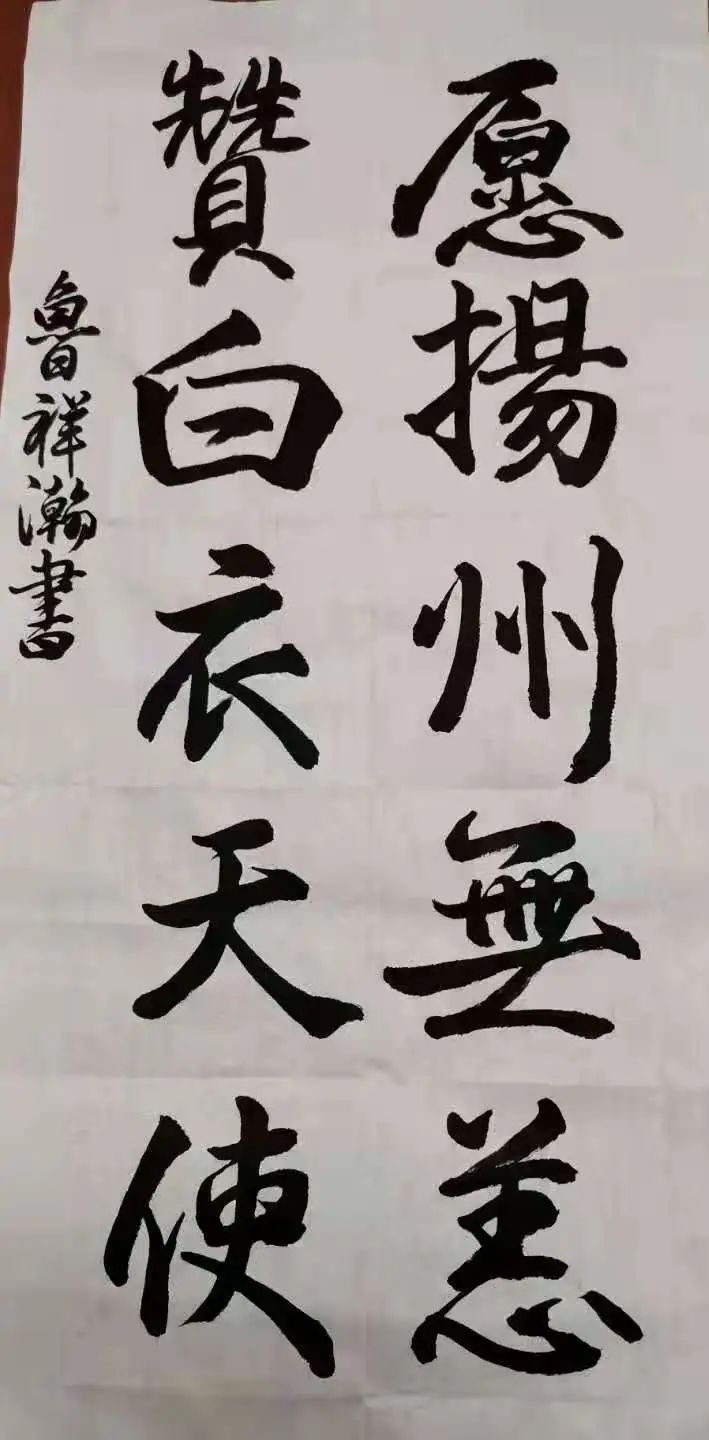 愿揚州無恙
贊白衣天使
魯祥瀚書